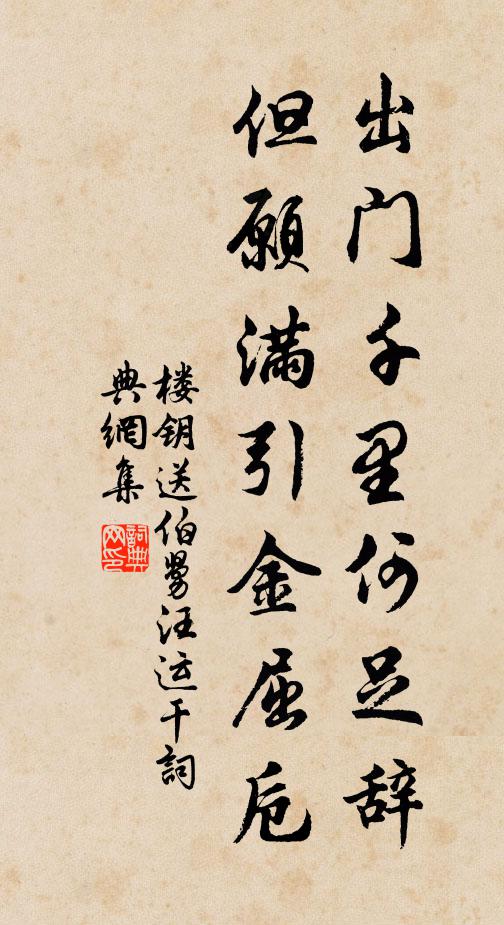 出门千里何足辞
但願满引金屈卮
楼钥送伯舅汪运干詞
典網集
詞典
网印